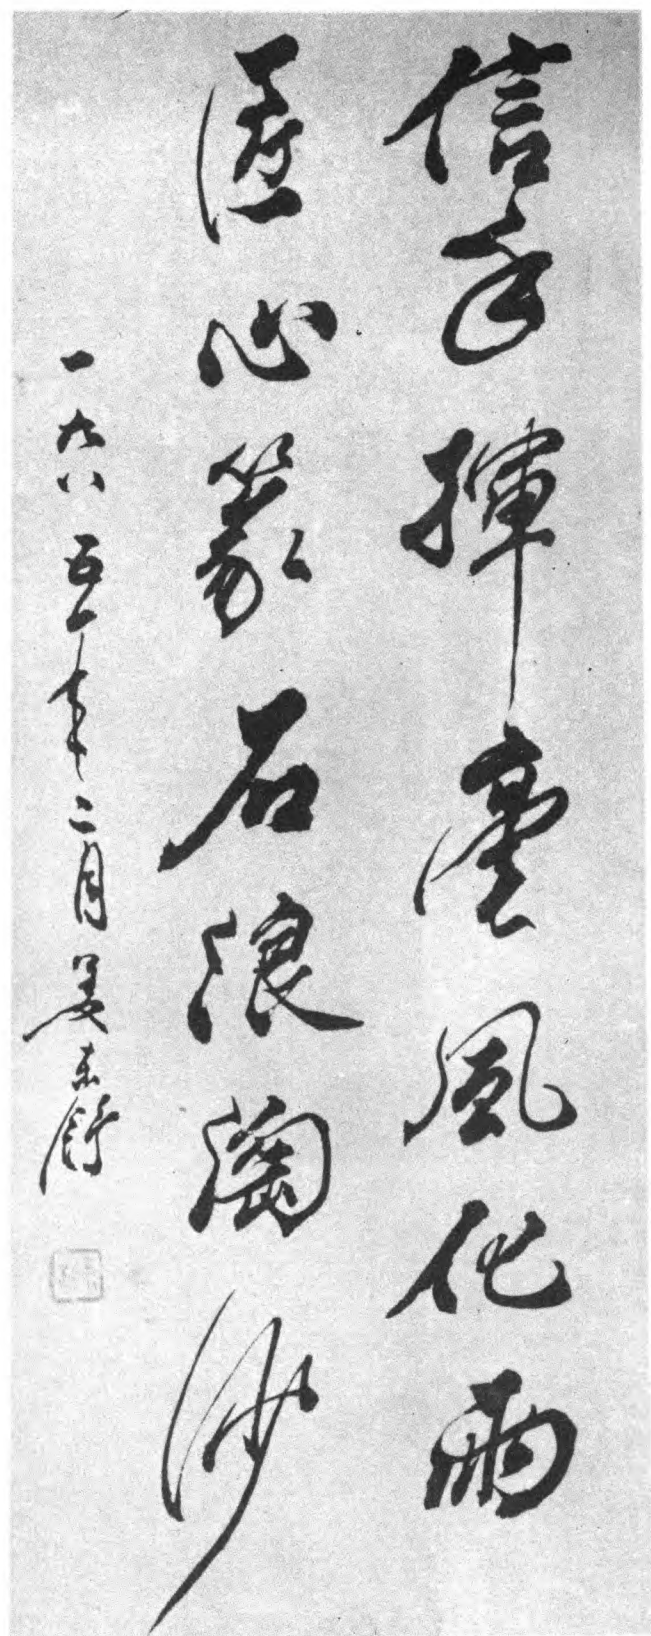 信手揮毫風化雨
匠心篆石浪淘沙
一九八五年二月姜东舒